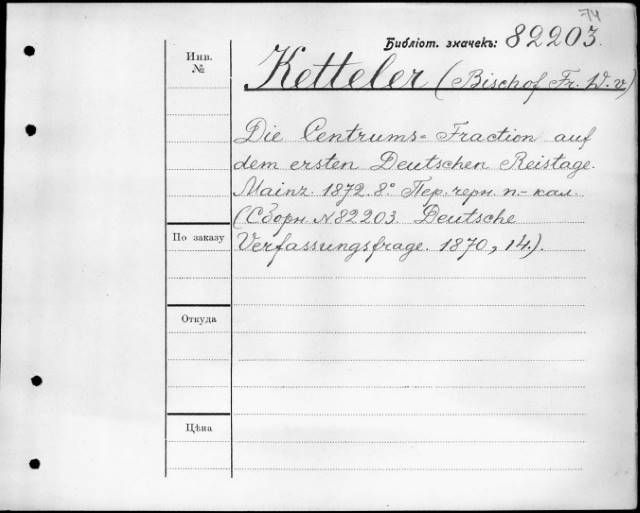 74
Библіот. значекъ: 82203.
Инв.
№
Ketteler (Bischof Fr. W. v)
Die Centrums= Fraction auf
dem ersten Deutschen Reistage.
Mainz. 1872. 8° Пер. черн. п.-кал.
(Сборн. N 82203. Deutsche
По заказу
Verfassungsfrage. 1870, 14.).
Откуда
Цѣна